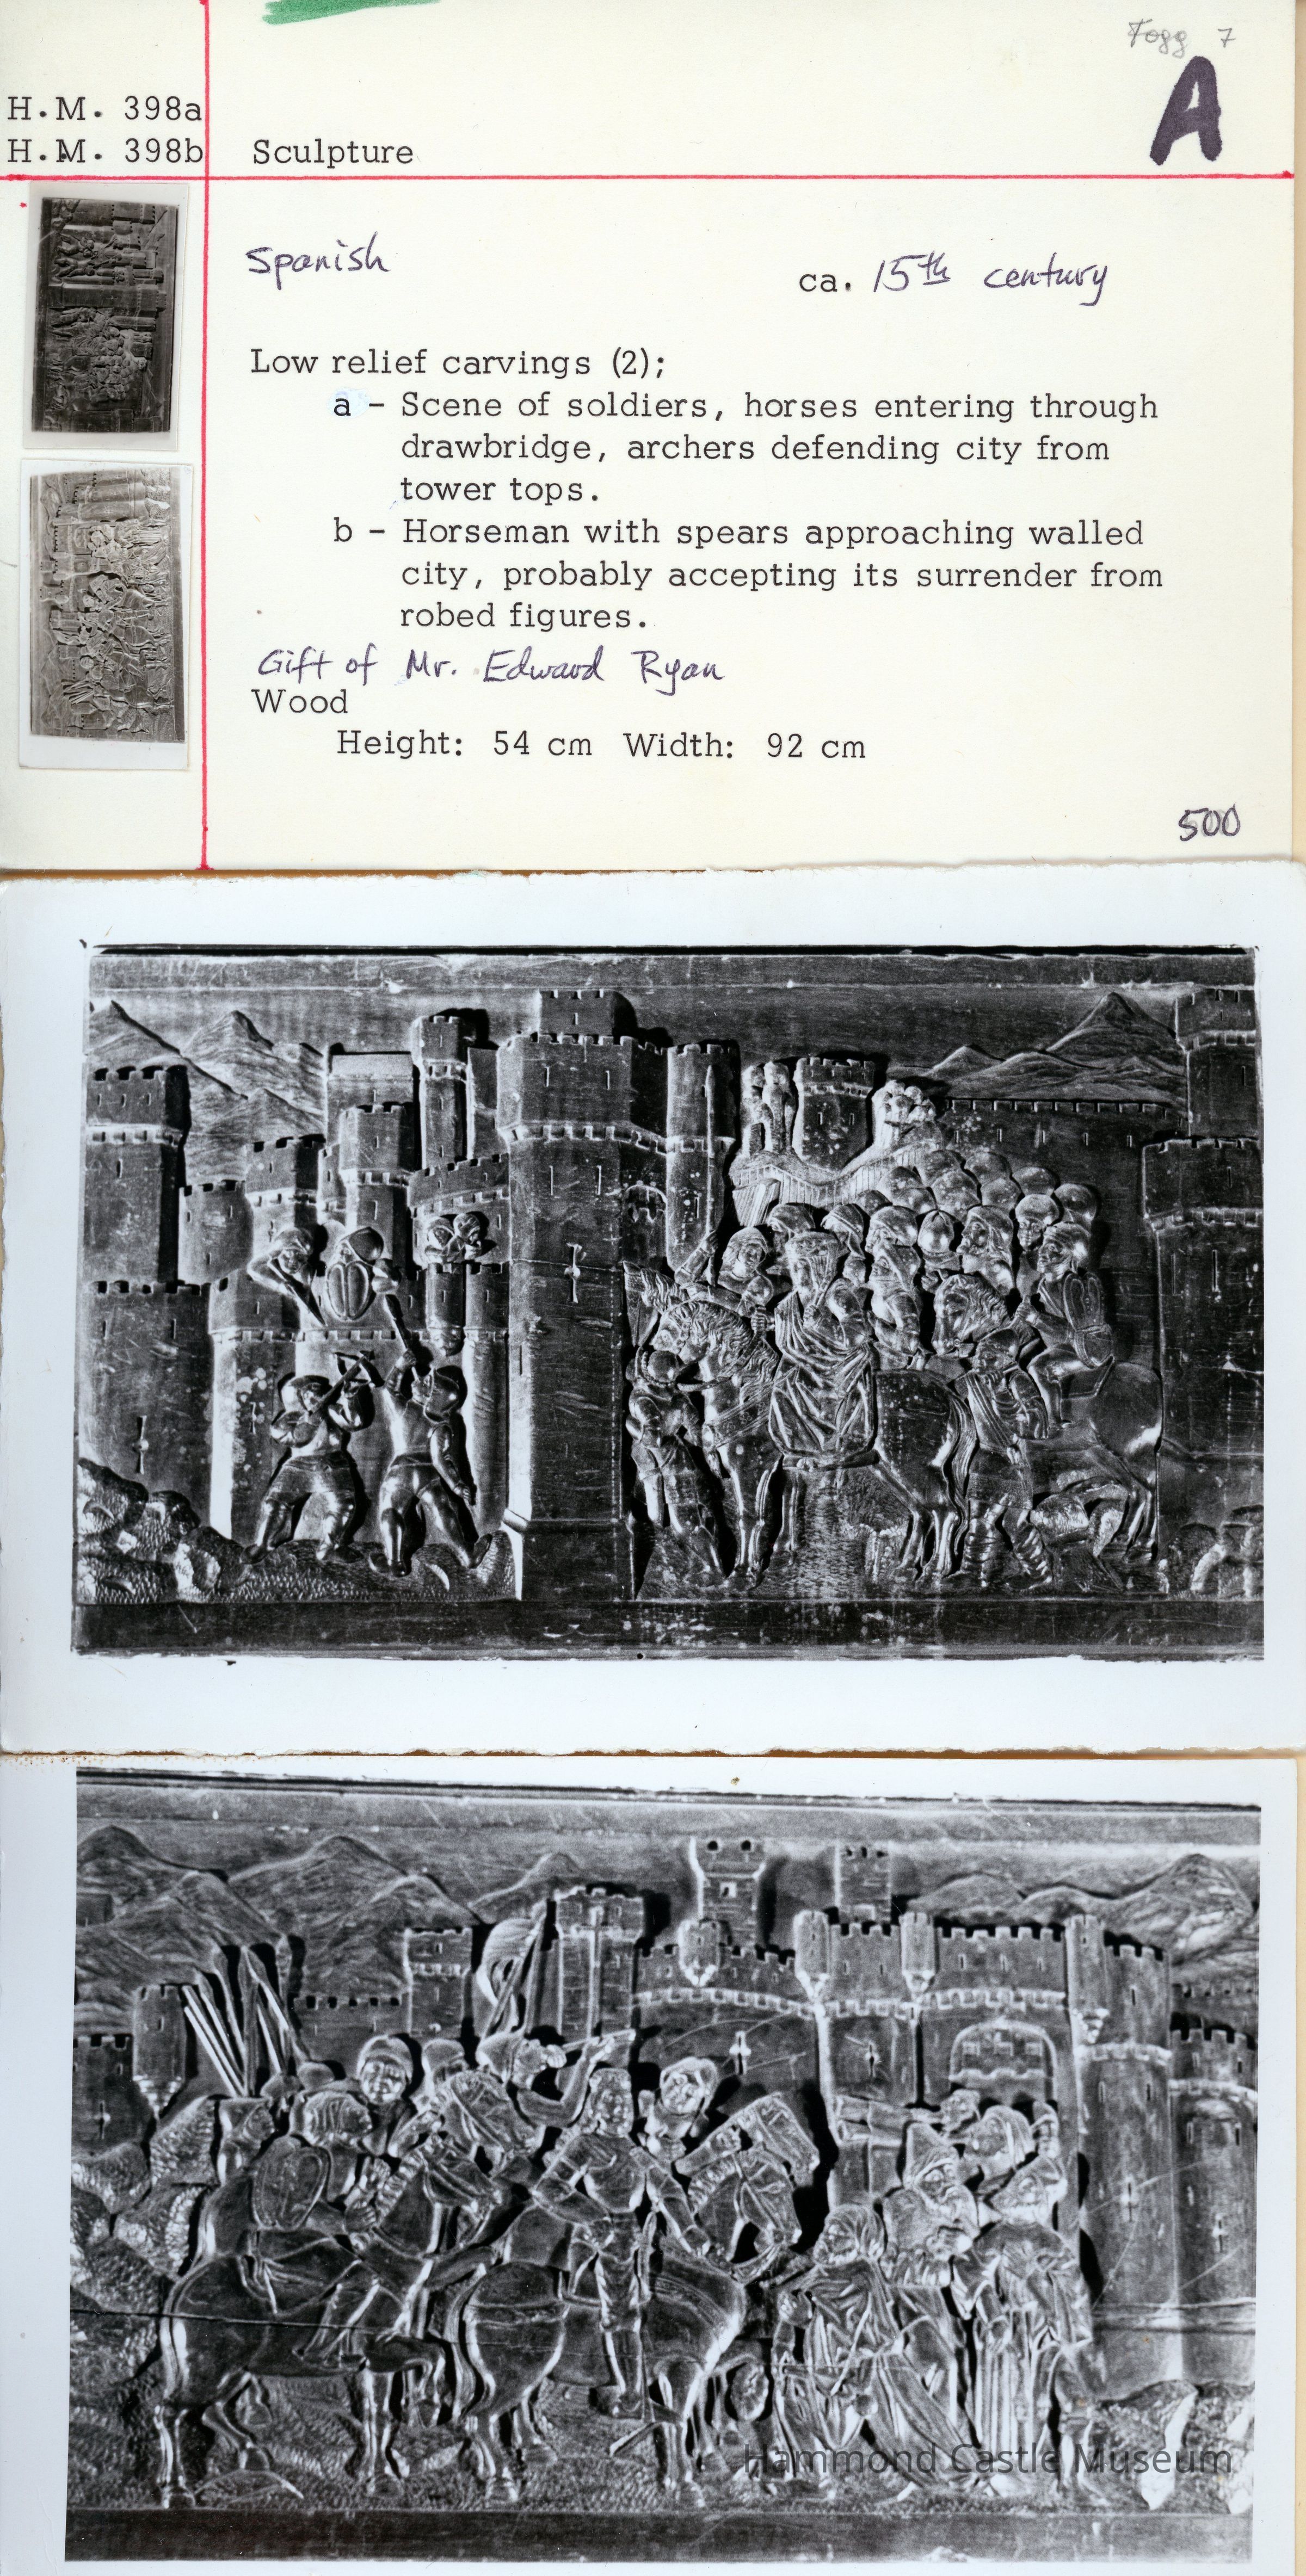 Fogg 7
A
H.M. 398a
H.M. 398b Sculpture
Spanish
ca. 15th century
Low relief carvings (2);
a - Scene of soldiers, horses entering through
drawbridge, archers defending city from
tower tops.
b - Horseman with spears approaching walled
city, probably accepting its surrender from
robed figures.
Gift of Mr. Edward Ryan
Wood
Height: 54 cm Width: 92 cm
500
Hammond Castle Museum